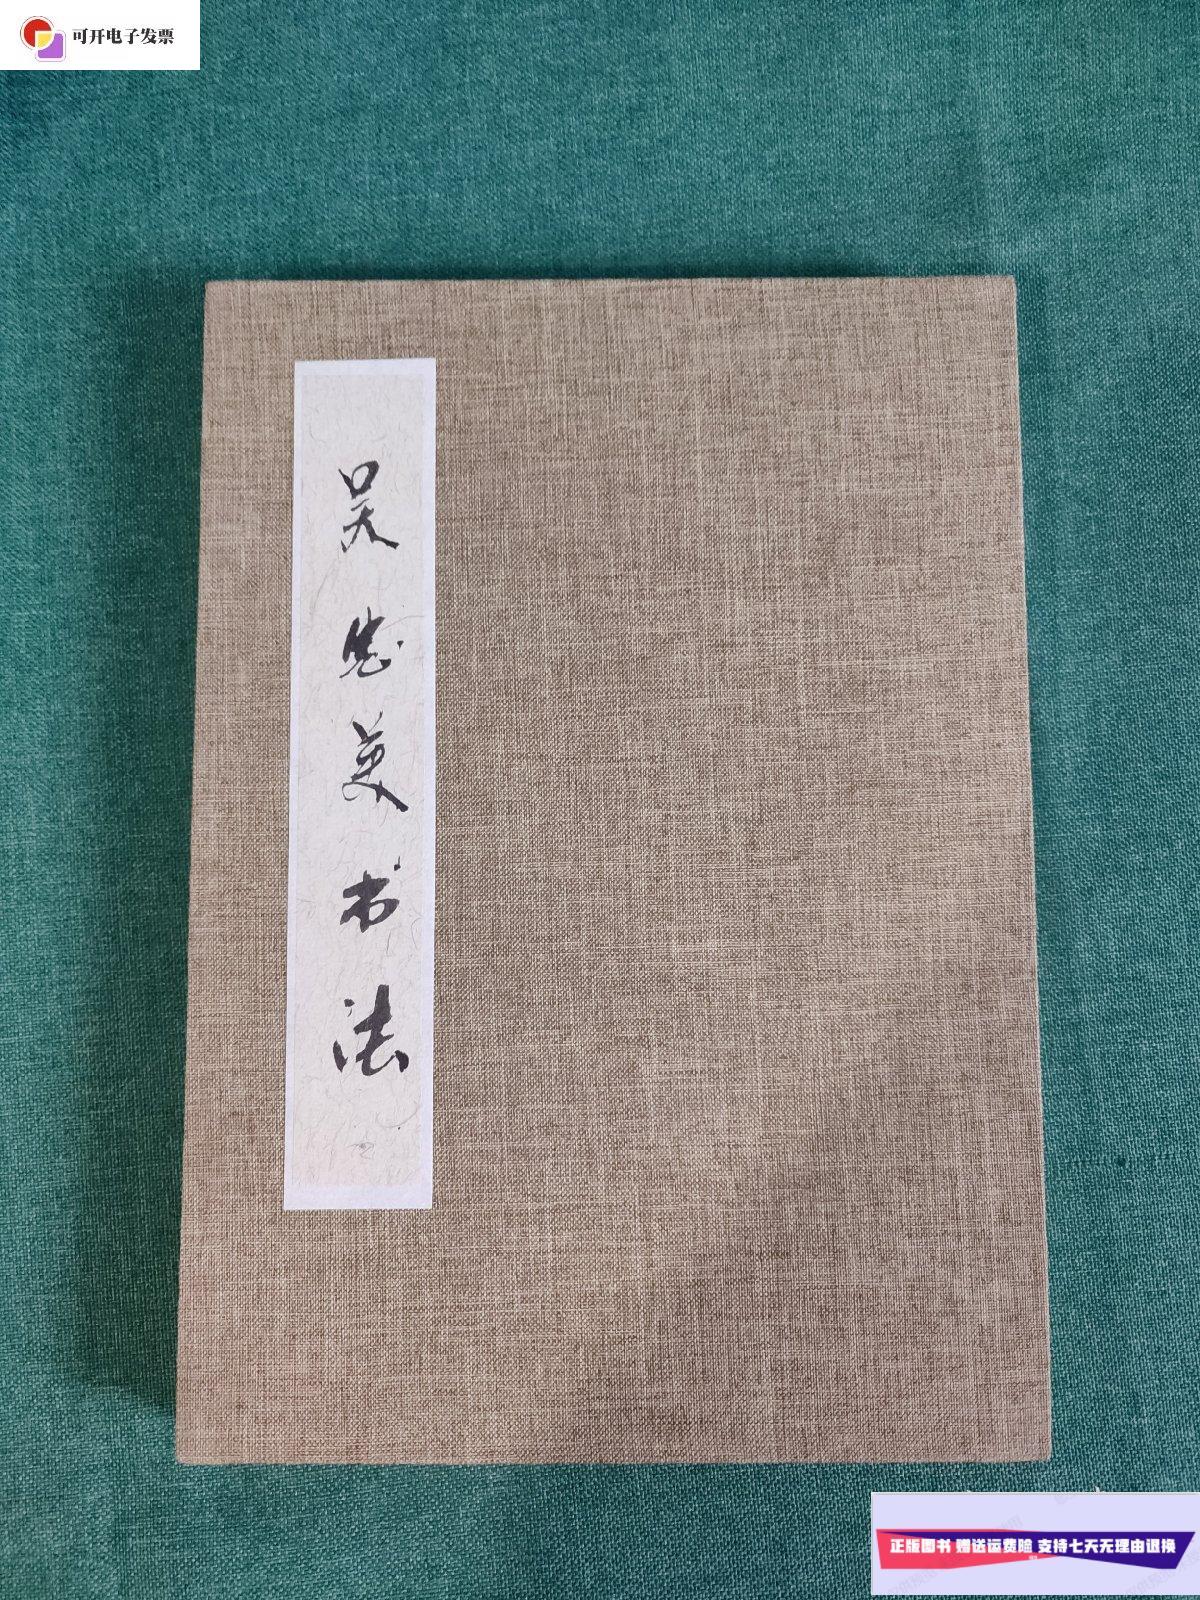 可开电子发票
吴忠美书法
正版图书 赠送运费险 支持七天无理由退换